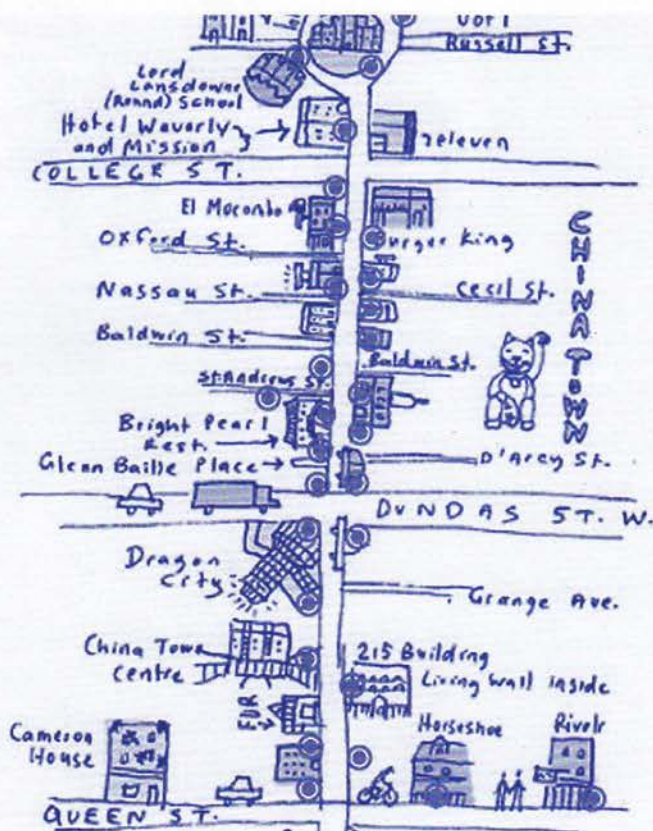 Russell St.
Lord
Lansdowne
(Round) School
Hotel Waverly
and Mission
7eleven
COLLEGE ST.
El Mocombo
Burger King
Oxford St.
CHINA TOWN
Nassau St.
Cecil St.
Baldwin St.
Baldwin St.
St Andrews St.
Bright Pearl
Rest.
Glenn Baille Place
D'Arcy St.
DUNDAS ST. W.
Dragon
City
Grange Ave.
China Town
Centre
215 Building
Living Wall Inside
FDR
Horseshoe
Rivoli
Cameron
House
QUEEN ST.